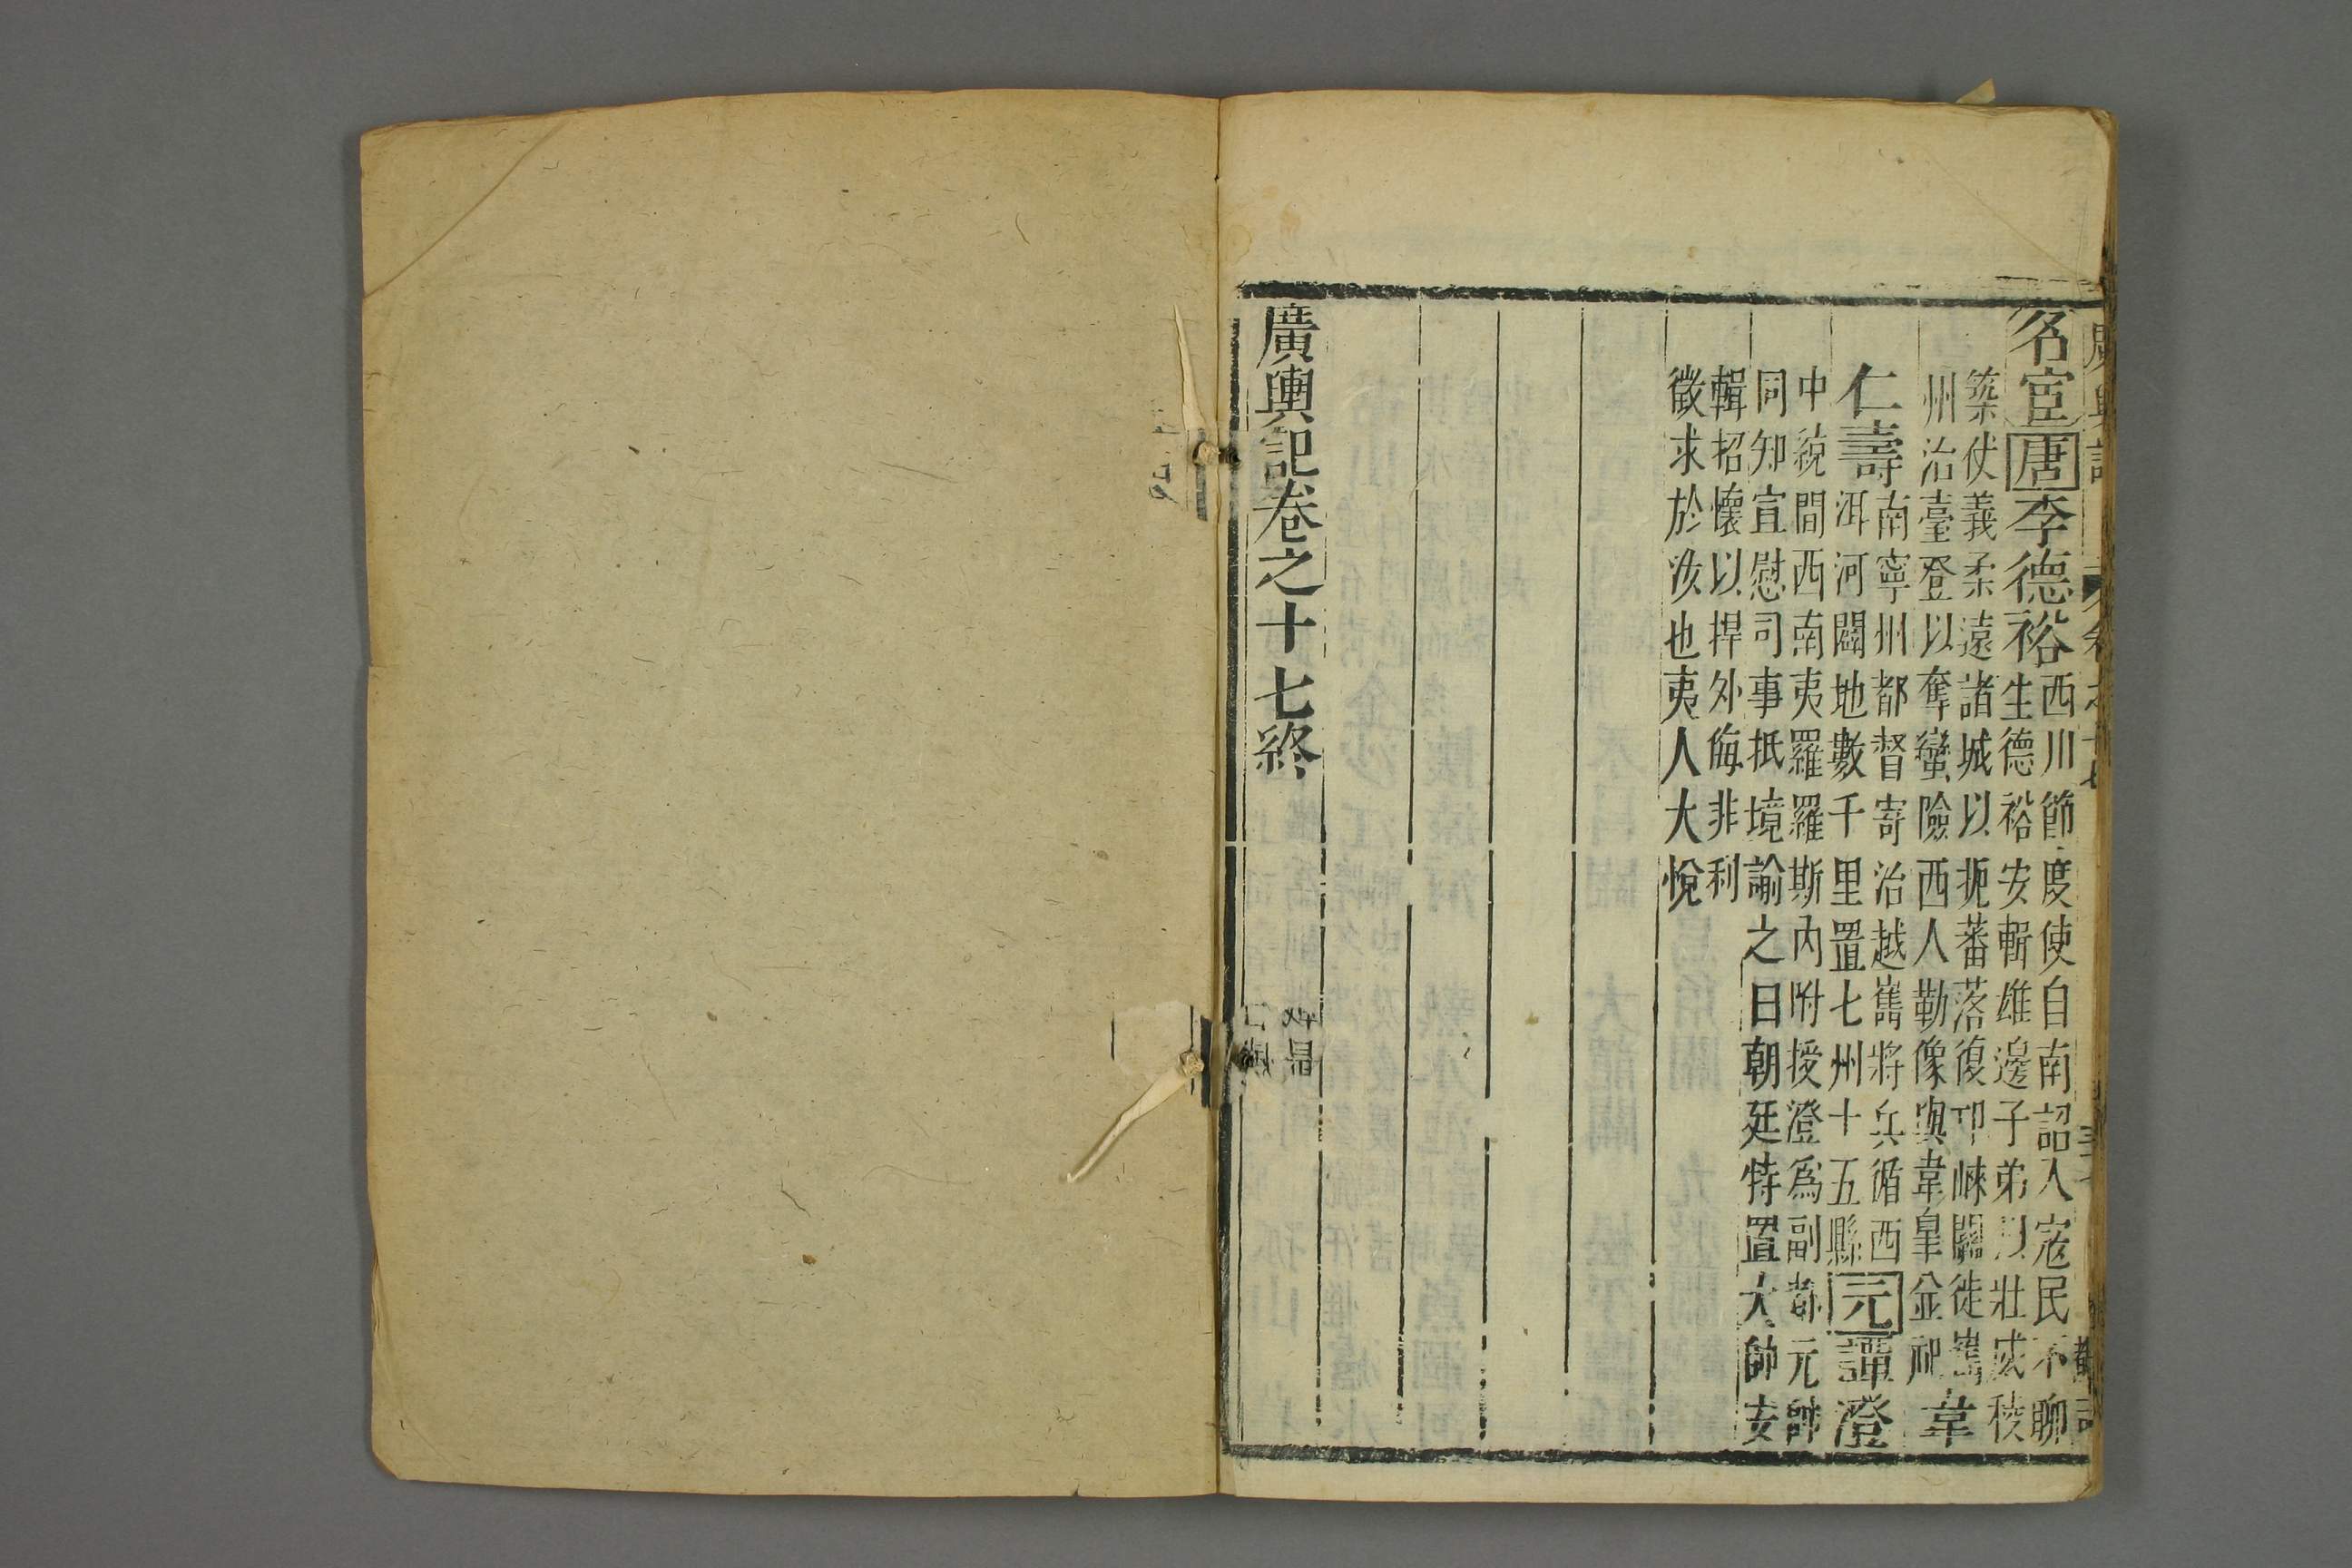 廣輿記 卷之十七
名宦唐李德裕西川節度使自南詔入寇民不聊
生德裕安輯雄邊子弟以壯威稜
築仗義柔遠諸城以扼蕃落復邛崍關徙巂
州治臺登以奪蠻險西人勒像與韋皐並祀韋
仁壽南寧州都督寄治越巂將兵循西
洱河闢地數千里置七州十五縣元譚澄
中統間西南夷羅羅斯內附授澄爲副都元帥
同知宣慰司事抵境諭之曰朝廷特置大帥安
輯招懷以捍外侮非利
徵求於汝也夷人大悅
廣輿記卷之十七終